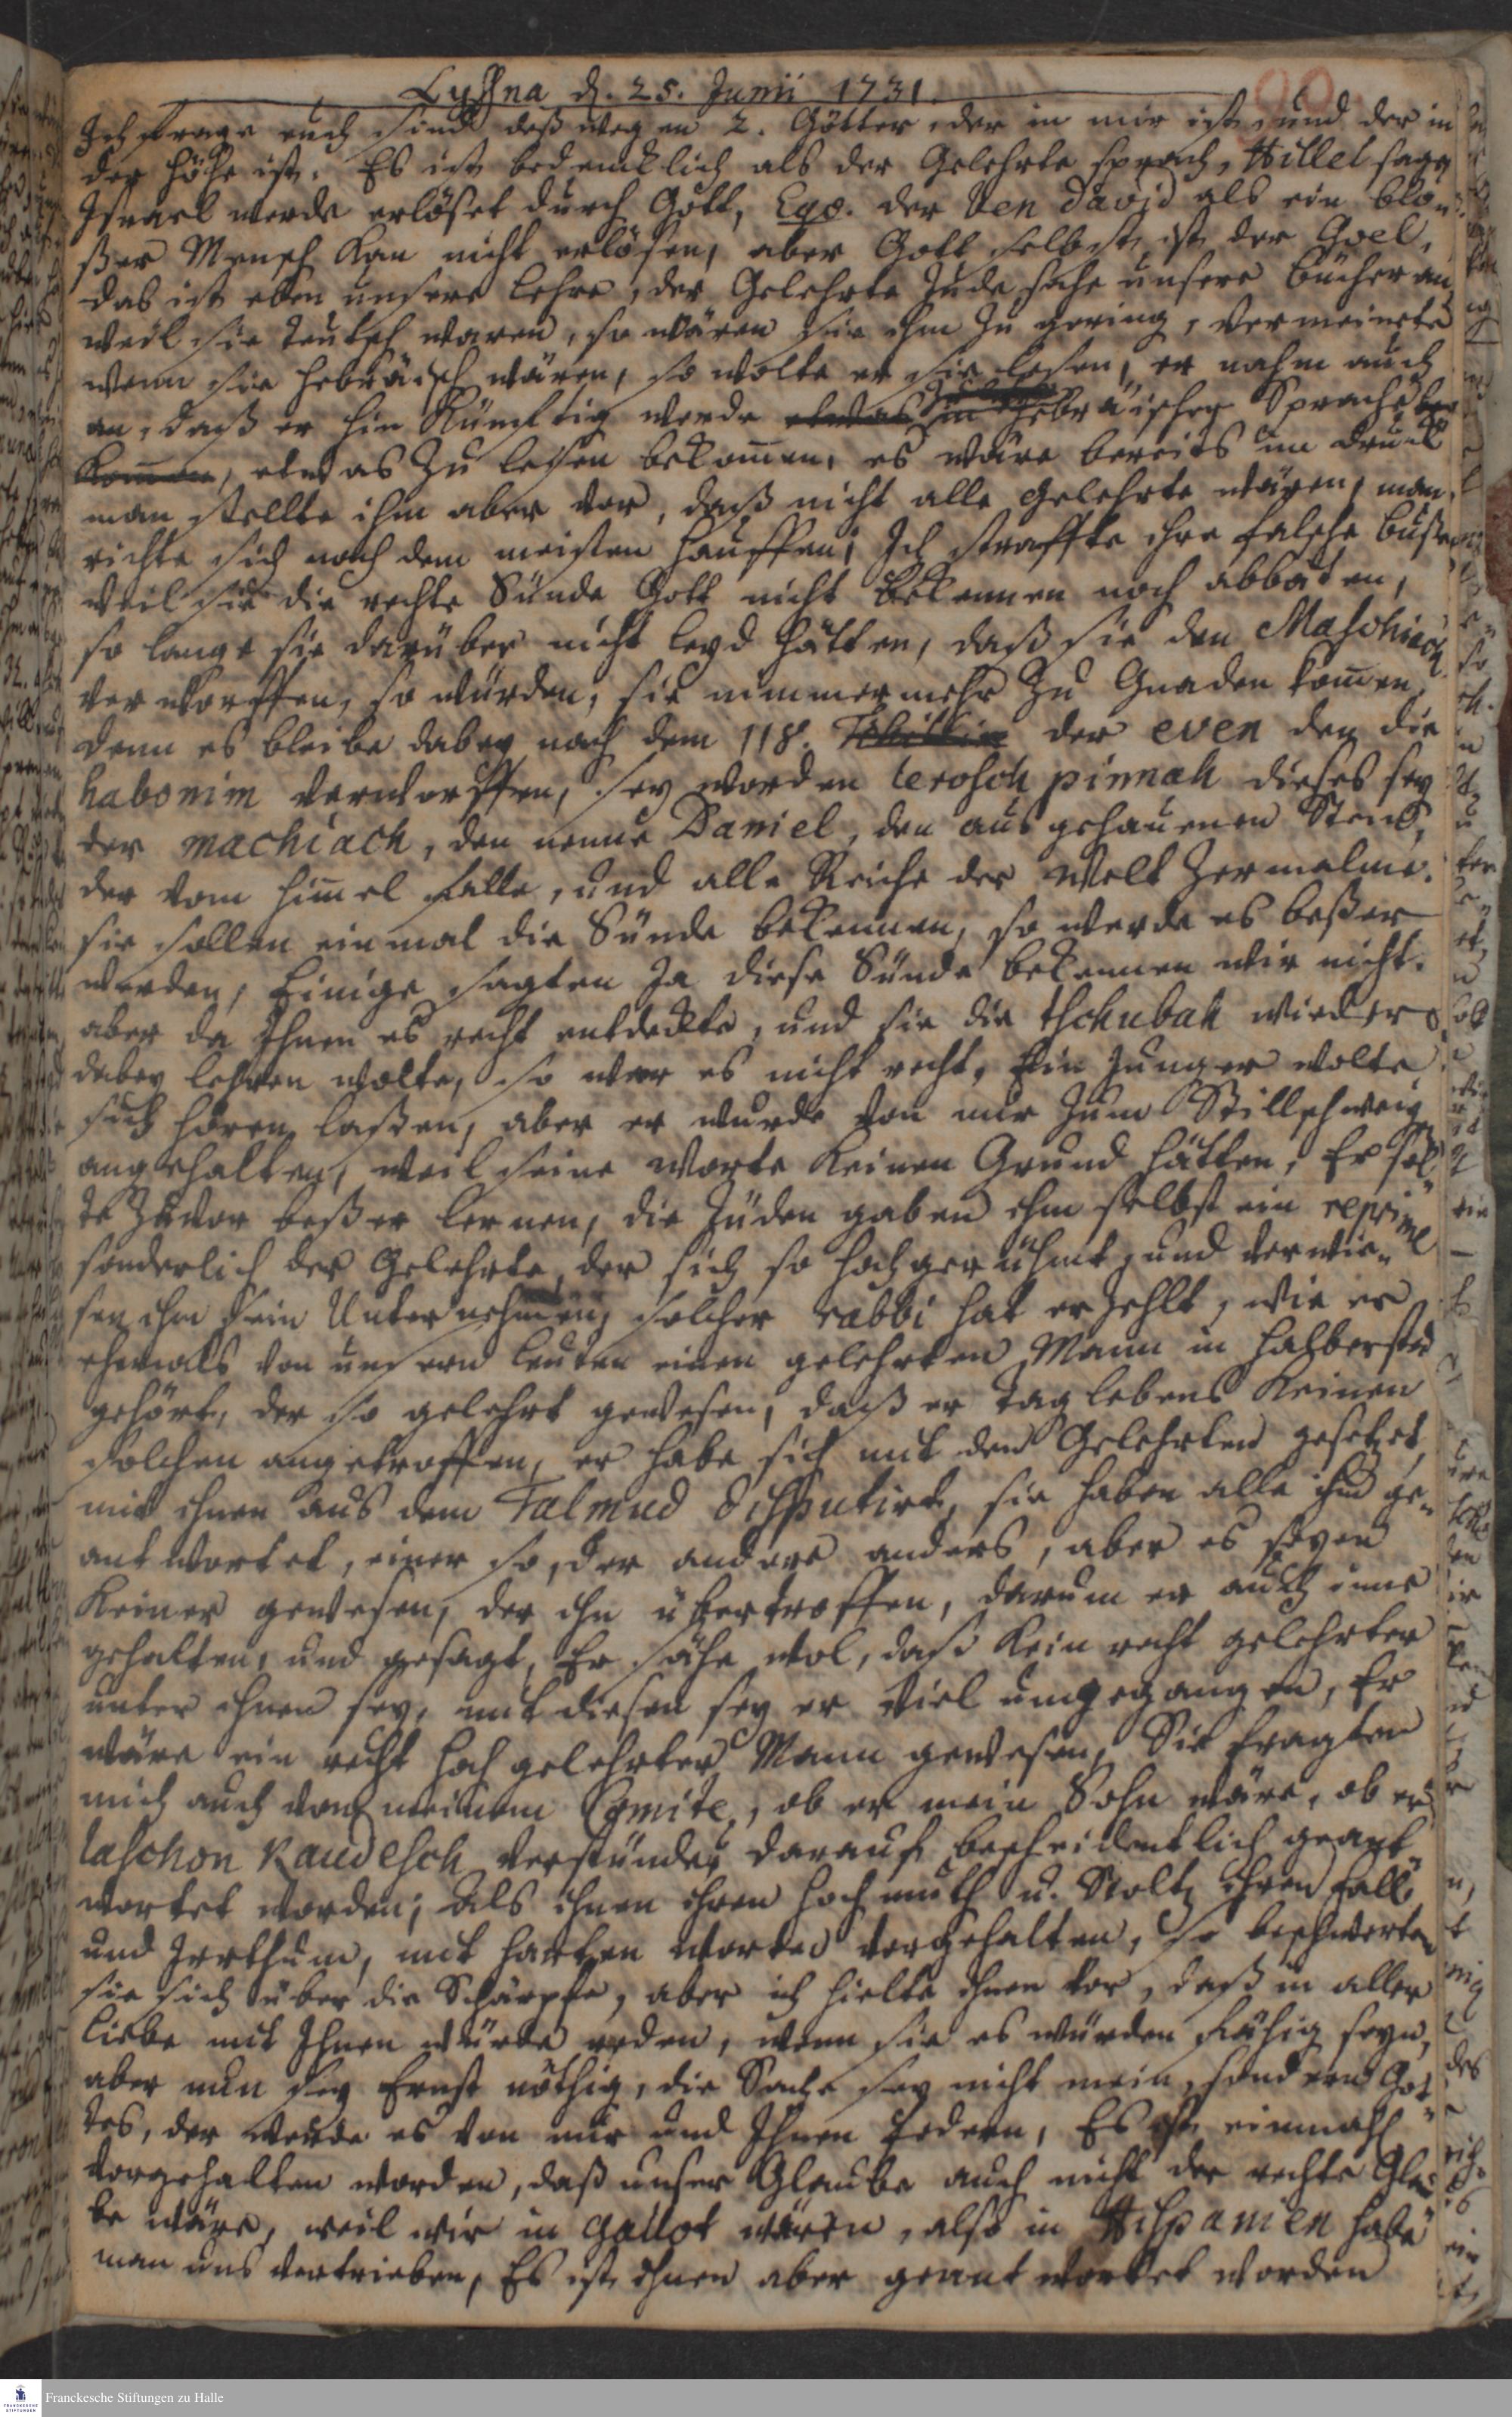 Lyssna d. 25. Junii 1731.
90.
Ich frage euch sind deßwegen 2. Götter, der in mir ist, und der in
der Höhe ist. Es ist bedencklich als der Gelehrte sprach, Hillel sage
Israel werde erlöset durch Gott, Ego. der Ben David als ein blo-
ßer Mensch kan nicht erlösen, aber Gott selbst ist der Goel,
das ist eben unsere Lehre, der Gelehrte Jude sahe unsere Bücher an
weil sie teutsch waren, so wären sie ihm zu gering, vermeinete
wenn sie hebräisch wären, so wolte er sie lesen, er nahm auch
an, daß er hin künfftig werde etwas in Hebräischer Sprache
kom̄en, etwas zu lesen bekom̄en, es wäre bereits im druck
man stellte ihm aber vor, daß nicht alle Gelehrte wären, man
richte sich nach dem meisten Hauffen; Ich straffte ihre falsche Buße
weil sie die rechte Sünde Gott nicht bekennen noch abbäten,
so lange sie darüber nicht leyd hätten, daß sie den Maschiach
verworffen, so würden, sie nimmermehr zu Gnaden kom̄en,
denn es bleibe dabey nach dem 118. Thillim der even den die
habonim verworffen, sey worden lerosch pinnah dieses sey
der machiach, den nenne Daniel, den ausgehauenen Stein,
der vom Him̄el falle, und alle Reiche der Welt zermalme.
sie sollen einmal die Sünde bekennen, so werde es beßer
werden, Einige sagten Ja diese Sünde bekennen wir nicht.
aber da Ihnen es recht entdeckte, und sie die tschubah wieder
dabey lehren wolte, so war es nicht recht, Ein Junger wolte
sich hören laßen, aber er wurde von mir zum Stillschweigen
angehalten, weil seine Worte keinen Grund hätten, Er sol-
te zuvor beßer lernen, die Jüden gaben ihm selbst ein reprime
sonderlich der Gelehrte, der sich so hoch gerühmt, und verwie-
sen ihm sein Unternehmen, solcher rabbi hat erzehlt, wie er
ehmals von unsern Leuten einen gelehrten Mann in Halberstad
gehört, der so gelehrt gewesen, daß er Tag lebens keinen
solchen angetroffen, er habe sich mit den Gelehrten gesetzet,
mit ihnen aus dem Talmud disputirt, sie haben alle ihm ge-
antwortet, einer so, der andere anders, aber es seyen
keiner gewesen, der ihn übertroffen, darum er auch inne
gehalten, und gesagt, Er sähe wol, daß kein recht gelehrter
unter ihnen sey, mit diesen sey er viel umgegangen, Er
wäre ein recht hoch gelehrter Mann gewesen, Sie fragten
mich auch von meinem Comite, ob er mein Sohn wäre, ob er
laschon kaudesch verstünde, darauf bescheidentlich geant-
wortet worden; Als ihnen ihren Hochmuth u. Stoltz ihren Fall
und Irrthum, mit harten Worten vorgehalten, so beschwerten
sie sich über die Schärpffe, aber ich hielte ihnen vor, daß in aller
Liebe mit Ihnen würde reden, wenn sie es würden fähig seyn,
aber nun sey Ernst nöthig, die Sache sey nicht mein, sondern Got-
tes, der werde es von mir und Ihnen fodern, Es ist einmahl
vorgehalten worden, daß unser Glaube auch nicht der rechte Glau-
be wäre, weil wir in Gallot wären, also in Hispanien habe
man uns vertrieben, Es ist ihnen aber geantwortet worden
Franckesche Stiftungen zu Halle